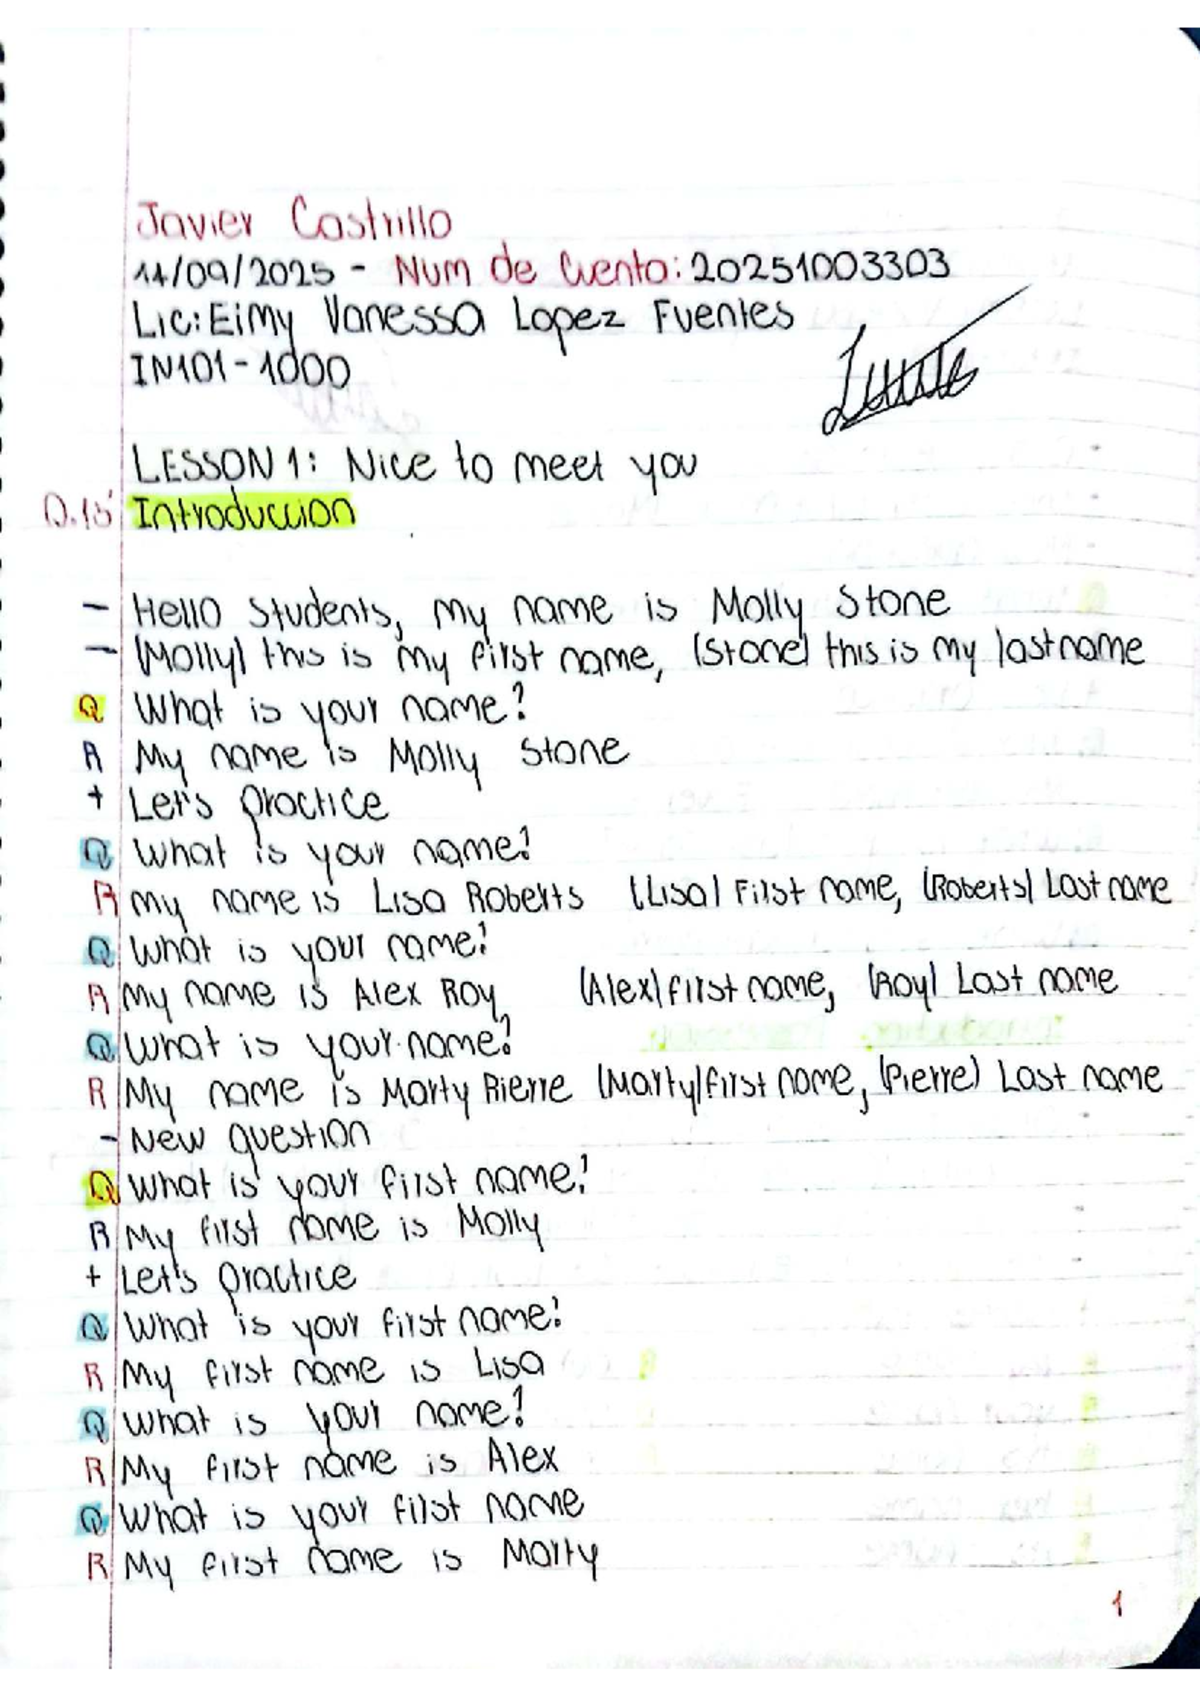 Javier Castrillo
14/09/2025 - Num de Cuenta: 20251003303
Lic: Eimy Vanessa Lopez Fuentes
IN101-1000
LESSON 1: Nice to meet you
Introduccion
- Hello Students, my name is Molly Stone
- (Molly) this is my first name, (Stone) this is my last name
Q What is your name?
A My name is Molly Stone
+ Let's practice
Q What is your name?
R My name is Lisa Roberts (Lisa) First name, (Roberts) Last name
Q What is your name?
R My name is Alex Roy (Alex) first name, (Roy) Last name
Q What is your name?
R My name is Marty Pierre (Marty) first name, (Pierre) Last name
- New question
Q What is your first name?
R My first name is Molly
+ Let's practice
Q What is your first name?
R My first name is Lisa
Q What is your name?
R My first name is Alex
Q What is your first name
R My first name is Marty
1